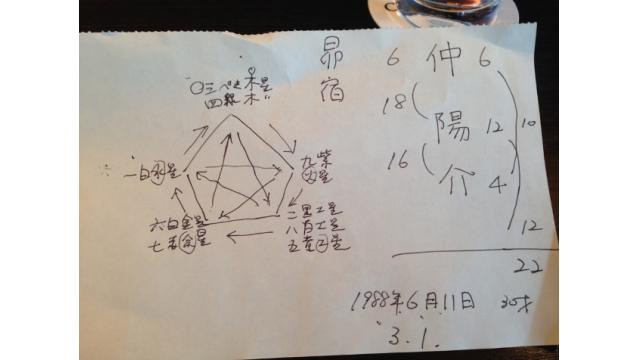 昴宿
三ペき木星
四緑木〃
一白水星
九紫
火星
六白金星
七赤金星
二黒土星
八白土星
五黄土星
6 仲 6
18
陽 12
10
16
介 4
12
22
1988年6月11日
3.1.